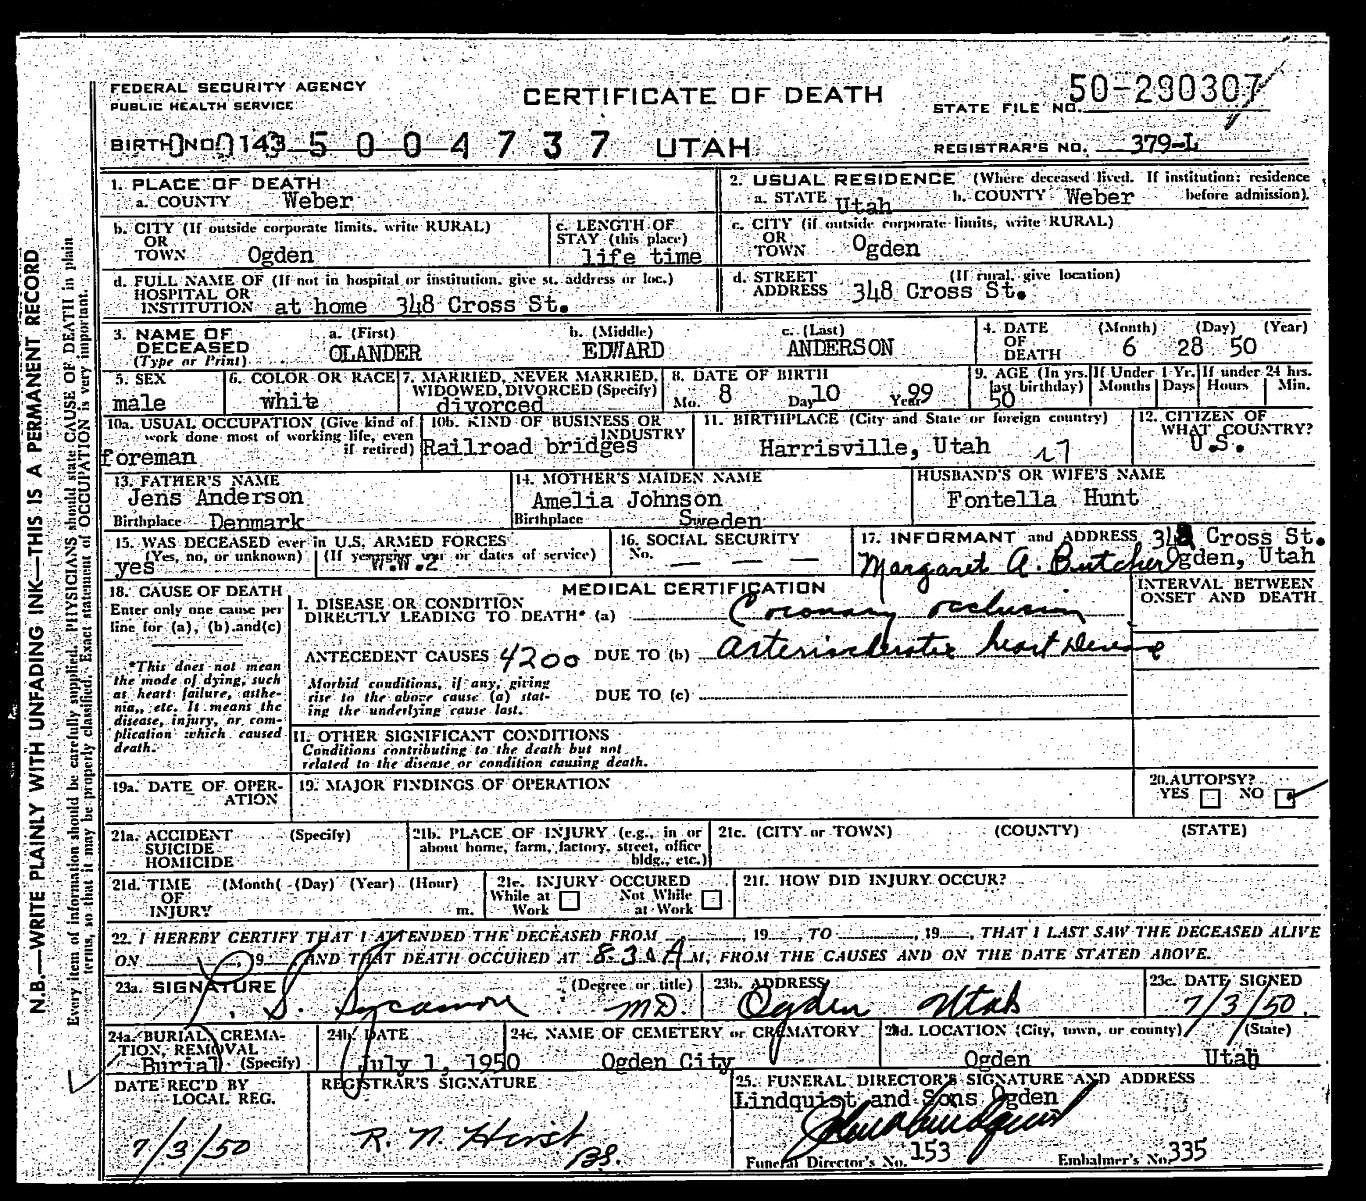 FEDERAL SECURITY AGENCY
PUBLIC HEALTH SERVICE
CERTIFICATE OF DEATH
STATE FILE NO. 50-290307
BIRTH NO. 0 0 143 5 0 0 4 7 3 7 UTAH
REGISTRAR'S NO. 379-L
1. PLACE OF DEATH
a. COUNTY Weber
2. USUAL RESIDENCE (Where deceased lived. If institution: residence before admission).
a. STATE Utah b. COUNTY Weber
b. CITY (If outside corporate limits, write RURAL)
OR
TOWN Ogden
c. LENGTH OF
STAY (this place)
life time
c. CITY (if outside corporate limits, write RURAL)
OR
TOWN Ogden
d. FULL NAME OF (If not in hospital or institution, give st. address or loc.)
HOSPITAL OR
INSTITUTION at home 348 Cross St.
d. STREET (If rural, give location)
ADDRESS 348 Cross St.
3. NAME OF
DECEASED
(Type or Print)
a. (First) b. (Middle) c. (Last)
OLANDER EDWARD ANDERSON
4. DATE (Month) (Day) (Year)
OF
DEATH 6 28 50
5. SEX
male
6. COLOR OR RACE
white
7. MARRIED, NEVER MARRIED,
WIDOWED, DIVORCED (Specify)
divorced
8. DATE OF BIRTH
Mo. 8 Day 10 Year 99
9. AGE (In yrs. last birthday)
50
If Under 1 Yr.
Months Days
If under 24 hrs.
Hours Min.
10a. USUAL OCCUPATION (Give kind of
work done most of working life, even
if retired)
foreman
10b. KIND OF BUSINESS OR
INDUSTRY
Railroad bridges
11. BIRTHPLACE (City and State or foreign country)
Harrisville, Utah
12. CITIZEN OF
WHAT COUNTRY?
U.S.
13. FATHER'S NAME
Jens Anderson
Birthplace Denmark
14. MOTHER'S MAIDEN NAME
Amelia Johnson
Birthplace Sweden
HUSBAND'S OR WIFE'S NAME
Fontella Hunt
15. WAS DECEASED ever in U.S. ARMED FORCES
(Yes, no, or unknown) (If yes, give war or dates of service)
yes W.W.2
16. SOCIAL SECURITY
No. — — —
17. INFORMANT and ADDRESS Cross St.
Margaret A. Butcher Ogden, Utah
18. CAUSE OF DEATH
Enter only one cause per
line for (a), (b) and (c)
*This does not mean
the mode of dying, such
as heart failure, asthe-
nia, etc. It means the
disease, injury, or com-
plication which caused
death.
MEDICAL CERTIFICATION
INTERVAL BETWEEN
ONSET AND DEATH
I. DISEASE OR CONDITION
DIRECTLY LEADING TO DEATH* (a) Coronary occlusion
ANTECEDENT CAUSES 4200 DUE TO (b) Arteriosclerotic heart Disease
Morbid conditions, if any, giving
rise to the above cause (a) stat-
ing the underlying cause last.
DUE TO (c)
II. OTHER SIGNIFICANT CONDITIONS
Conditions contributing to the death but not
related to the disease or condition causing death.
19a. DATE OF OPER-
ATION
19. MAJOR FINDINGS OF OPERATION
20. AUTOPSY?
YES NO
21a. ACCIDENT (Specify)
SUICIDE
HOMICIDE
21b. PLACE OF INJURY (e.g., in or
about home, farm, factory, street, office
bldg., etc.)
21c. (CITY or TOWN) (COUNTY) (STATE)
21d. TIME (Month) (Day) (Year) (Hour)
OF
INJURY m.
21e. INJURY OCCURED
While at Work Not While at Work
21f. HOW DID INJURY OCCUR?
22. I HEREBY CERTIFY THAT I ATTENDED THE DECEASED FROM , 19 , TO , 19 , THAT I LAST SAW THE DECEASED ALIVE
ON , 19 AND THAT DEATH OCCURED AT 8:30 A M, FROM THE CAUSES AND ON THE DATE STATED ABOVE.
23a. SIGNATURE (Degree or title)
S. Sycamore MD.
23b. ADDRESS
Ogden Utah
23c. DATE SIGNED
7/3/50.
24a. BURIAL, CREMA-
TION, REMOVAL
Burial (Specify)
24b. DATE
July 1, 1950
24c. NAME OF CEMETERY or CREMATORY
Ogden City
24d. LOCATION (City, town, or county) (State)
Ogden Utah
DATE REC'D BY
LOCAL REG.
7/3/50
REGISTRAR'S SIGNATURE
R. N. Hirst
Bs.
25. FUNERAL DIRECTOR'S SIGNATURE AND ADDRESS
Lindquist and Sons Ogden
Funeral Director's No. 153 Embalmer's No. 335
N.B.—WRITE PLAINLY WITH UNFADING INK—THIS IS A PERMANENT RECORD
Every item of information should be carefully supplied. PHYSICIANS should state CAUSE OF DEATH in plain
terms, so that it may be properly classified. Exact statement of OCCUPATION is very important.